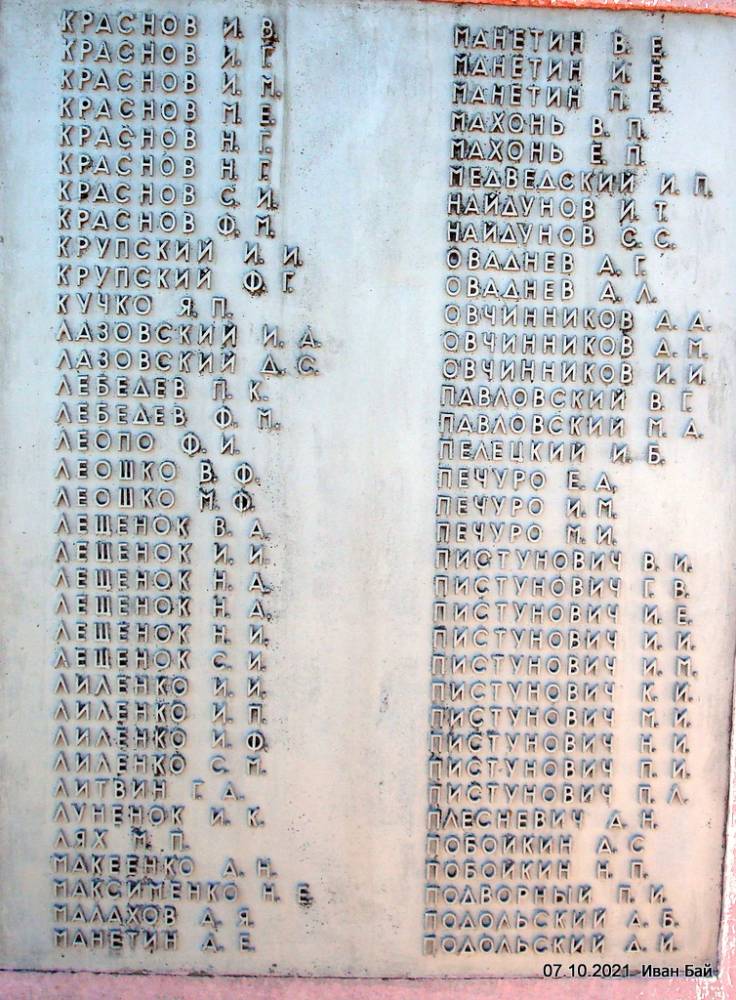 КРАСНОВ И. В.
КРАСНОВ И. Г.
КРАСНОВ И. М.
КРАСНОВ М. Е.
КРАСНОВ Н. Г.
КРАСНОВ Н. Г.
КРАСНОВ С. И.
КРАСНОВ Ф. М.
КРУПСКИЙ И. И.
КРУПСКИЙ Ф. Г.
КУЧКО Я. П.
ЛАЗОВСКИЙ И. Д.
ЛАЗОВСКИЙ Д. С.
ЛЕБЕДЕВ П. К.
ЛЕБЕДЕВ Ф. М.
ЛЕОПО Ф. И.
ЛЕОШКО В. Ф.
ЛЕОШКО М. Ф.
ЛЕЩЕНОК В. А.
ЛЕЩЕНОК И. И.
ЛЕЩЕНОК Н. Д.
ЛЕЩЕНОК Н. Д.
ЛЕЩЕНОК Н. И.
ЛЕЩЕНОК С. И.
ЛИЛЕНКО И. И.
ЛИЛЕНКО И. П.
ЛИЛЕНКО И. Ф.
ЛИЛЕНКО С. М.
ЛИТВИН Г. Д.
ЛУНЕНОК И. К.
ЛЯХ М. П.
МАКЕЕНКО А. Н.
МАКСИМЕНКО Н. Е.
МАЛАХОВ А. Я.
МАНЕТИН А. Е.
МАНЕТИН В. Е.
МАНЕТИН И. Е.
МАНЕТИН П. Е.
МАХОНЬ В. П.
МАХОНЬ Е. П.
МЕДВЕДСКИЙ И. П.
НАЙДУНОВ И. Т.
НАЙДУНОВ С. С.
ОВАДНЕВ А. Г.
ОВАДНЕВ А. Л.
ОВЧИННИКОВ А. А.
ОВЧИННИКОВ А. М.
ОВЧИННИКОВ И. И.
ПАВЛОВСКИЙ В. Г.
ПАВЛОВСКИЙ М. Д.
ПЕЛЕЦКИЙ И. Б.
ПЕЧУРО Е. Д.
ПЕЧУРО И. М.
ПЕЧУРО М. И.
ПИСТУНОВИЧ В. И.
ПИСТУНОВИЧ Г. В.
ПИСТУНОВИЧ И. Е.
ПИСТУНОВИЧ И. И.
ПИСТУНОВИЧ И. М.
ПИСТУНОВИЧ К. И.
ПИСТУНОВИЧ М. И.
ПИСТУНОВИЧ Н. И.
ПИСТУНОВИЧ П. И.
ПИСТУНОВИЧ П. Л.
ПЛЕСНЕВИЧ А. Н.
ПОБОЙКИН Д. С
ПОБОЙКИН Н. П.
ПОДВОРНЫЙ П. И.
ПОДОЛЬСКИЙ А. Б.
ПОДОЛЬСКИЙ А. И.
07.10.2021 Иван Бай